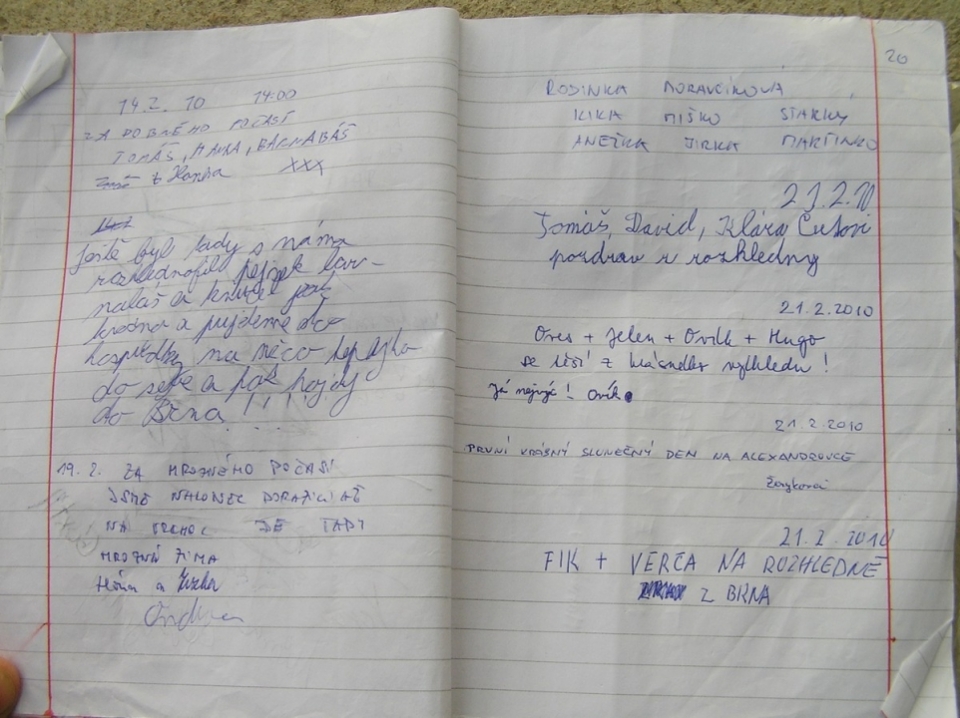 14.2. 10 14:00
ZA DOBRÉHO POČASÍ
TOMÁŠ, HANKA, BARNABÁŠ
z XXX
Ještě byl tady s náma
rozhlednofil pejsek
a
hladna a pujdeme do
hospůdky na něco teplýho
do sebe a pak hajdy
do Brna!!!!
19. 2. ZA MROZNÉHO POČASÍ
JSME NAKONEC DORAZILI AŽ
NA VRCHOL JE TADY
MROZNÁ ZIMA
a
Ondra
20
RODINKA MORAVČÍKOVÁ
KIKA MIŠKO STARKÝ
ANEŽKA JIRKA MARTINKO
21.2.10
Tomáš, David, Klára Cutovi
pozdrav z rozhledny
21.2.2010
Oves + Jelen + Ovík + Hugo
se těší z krásného výhledu!
Já nejvíc! Ovík
21.2.2010
PRVNÍ KRÁSNÝ SLUNEČNÝ DEN NA ALEXANDROVCE
21.2.2010
FIK + VERČA NA ROZHLEDNĚ
Z BRNA